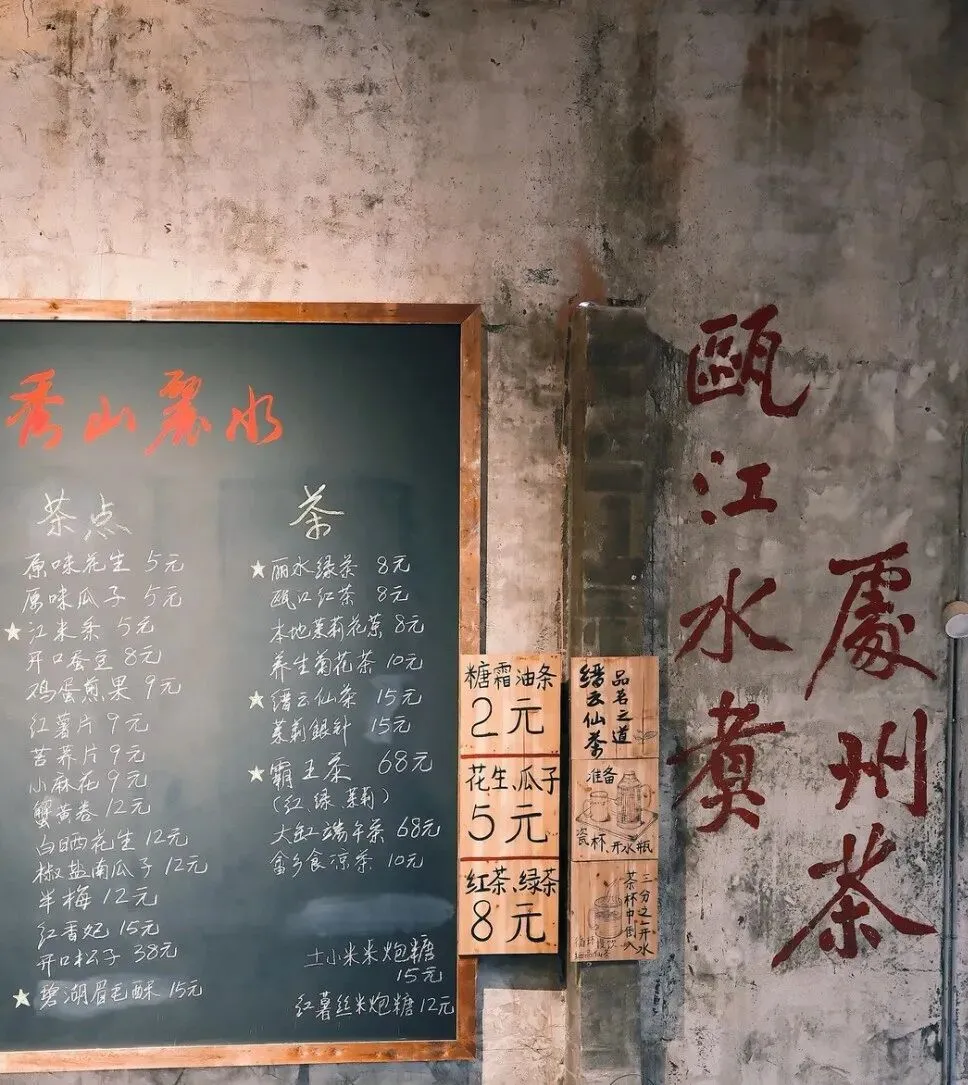 秀山麗水
茶点
原味花生 5元
原味瓜子 5元
★江米条 5元
开口蚕豆 8元
鸡蛋煎果 9元
红薯片 9元
苦荞片 9元
小麻花 9元
蟹黄卷 12元
白晒花生 12元
椒盐南瓜子 12元
半梅 12元
红香妃 15元
开口松子 38元
★碧湖眉毛酥 15元
茶
★丽水绿茶 8元
瓯口红茶 8元
本地茉莉花茶 8元
养生菊花茶 10元
★缙云仙茶 15元
茉莉銀針 15元
★霸王茶 68元
(红 绿 茉莉)
大缸端午茶 68元
畲乡食凉茶 10元
土小米米炮糖
15元
红薯丝米炮糖 12元
糖霜油条
2元
花生、瓜子
5元
红茶、绿茶
8元
品茗之道
缙云仙茶
准备
瓷杯、开水瓶
三分之一开水
茶杯中倒入
甌江水煮
處州茶